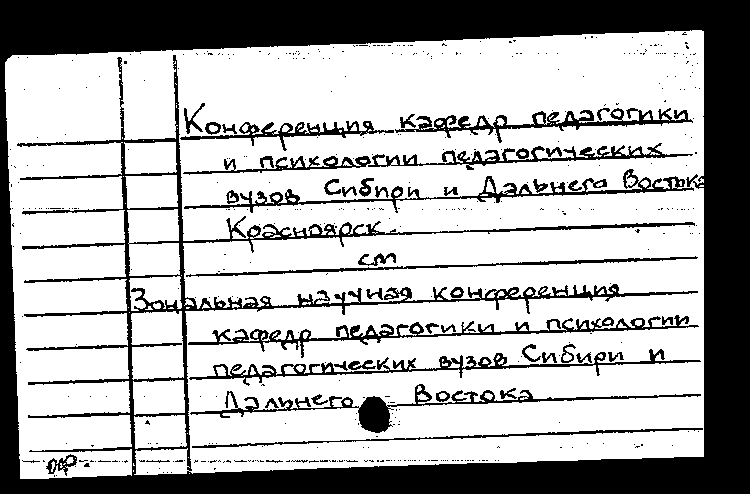 Конференция кафедр педагогики
и психологии педагогических
вузов Сибири и Дальнего Востока
Красноярск.
см
Зональная научная конференция
кафедр педагогики и психологии
педагогических вузов Сибири и
Дальнего Востока